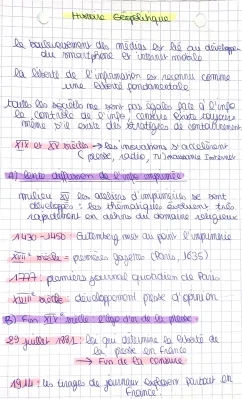 Histoire Géopolitique
le bouleversement des médias est lié au développem
du smartphone et internet mobile
la liberté de l'information est reconnu comme
une liberté fondamentale
toutes les sociétés ne sont pas égales face à l'info
le contrôle de l'info, censure existe toujours
même s'il existe des stratégies de contournement
XIX et XX siècles → les innovations s'accélèrent
(presse, radio, TV, maintenant Internet
A) lente diffusion de l'info imprimée
milieu XV les ateliers d'imprimerie se sont
développés : les thématiques évoluent très
rapidement en dehors du domaine religieux
1430-1450 : Gutenberg met au point l'imprimerie
XVII siècle = premières gazettes (Paris, 1635)
1777 : premiers journal quotidien de Paris
XVIII siècle : développement presse d'opinion
B) Fin XIX siècle l'âge d'or de la presse
29 juillet 1881 : loi qui détermine la liberté de
la presse en France
→ Fin de la censure
1914 : les tirages de journaux explosent partout en
France